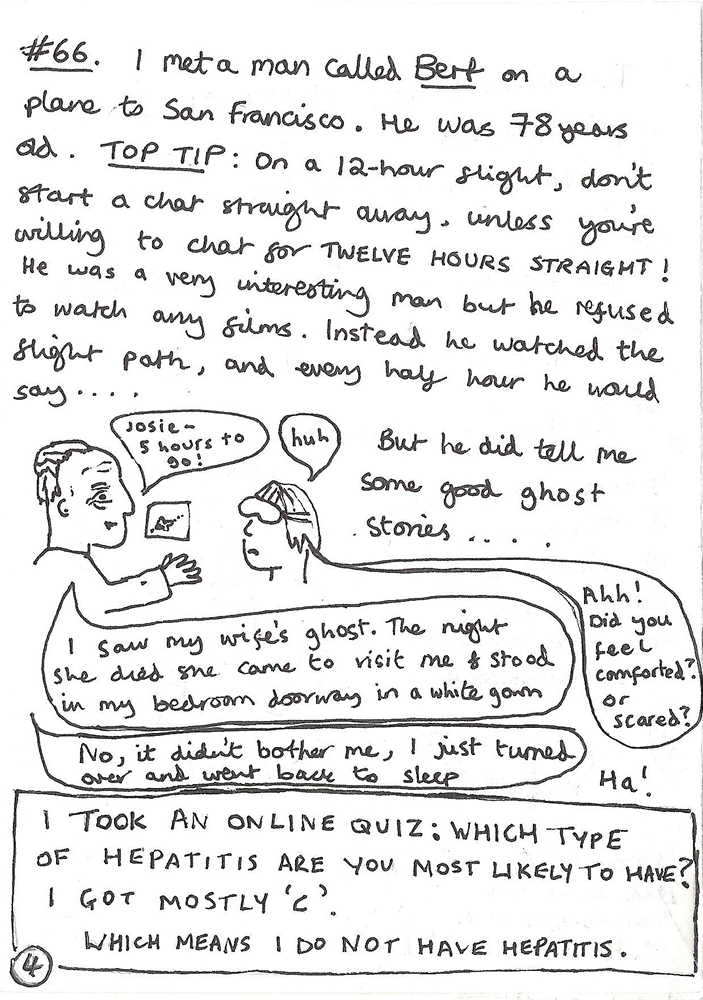 #66. I met a man called Bert on a
plane to San Francisco. He was 78 years
old. TOP TIP: On a 12-hour flight, don't
start a chat straight away, unless you're
willing to chat for TWELVE HOURS STRAIGHT!
He was a very interesting man but he refused
to watch any films. Instead he watched the
flight path, and every half hour he would
say....
Josie-
5 hours to
go!
huh
But he did tell me
some good ghost
stories....
I saw my wife's ghost. The night
she died she came to visit me & stood
in my bedroom doorway in a white gown
Ahh!
Did you
feel
comforted?
or
scared?
No, it didn't bother me, I just turned
over and went back to sleep
Ha!
I TOOK AN ONLINE QUIZ: WHICH TYPE
OF HEPATITIS ARE YOU MOST LIKELY TO HAVE?
I GOT MOSTLY 'C'.
WHICH MEANS I DO NOT HAVE HEPATITIS.
4